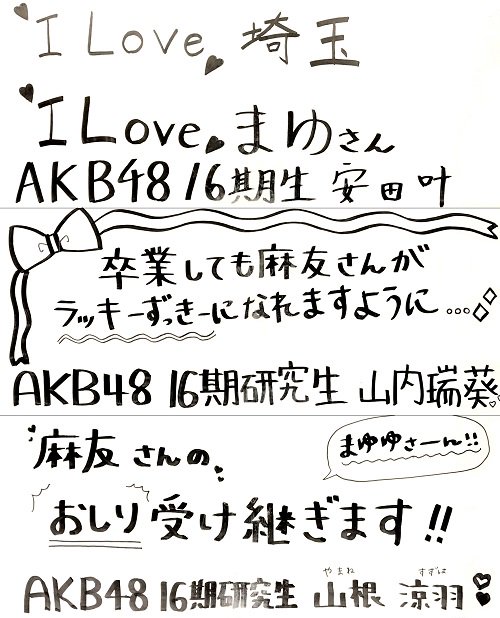 I Love 埼玉
I Love まゆさん
AKB48 16期生 安田 叶
卒業しても麻友さんが
ラッキーずっきーになれますように...。
AKB48 16期研究生 山内瑞葵
麻友さんの
まゆゆさーん!!
おしり受け継ぎます!!
やまね すずは
AKB48 16期研究生 山根 涼羽